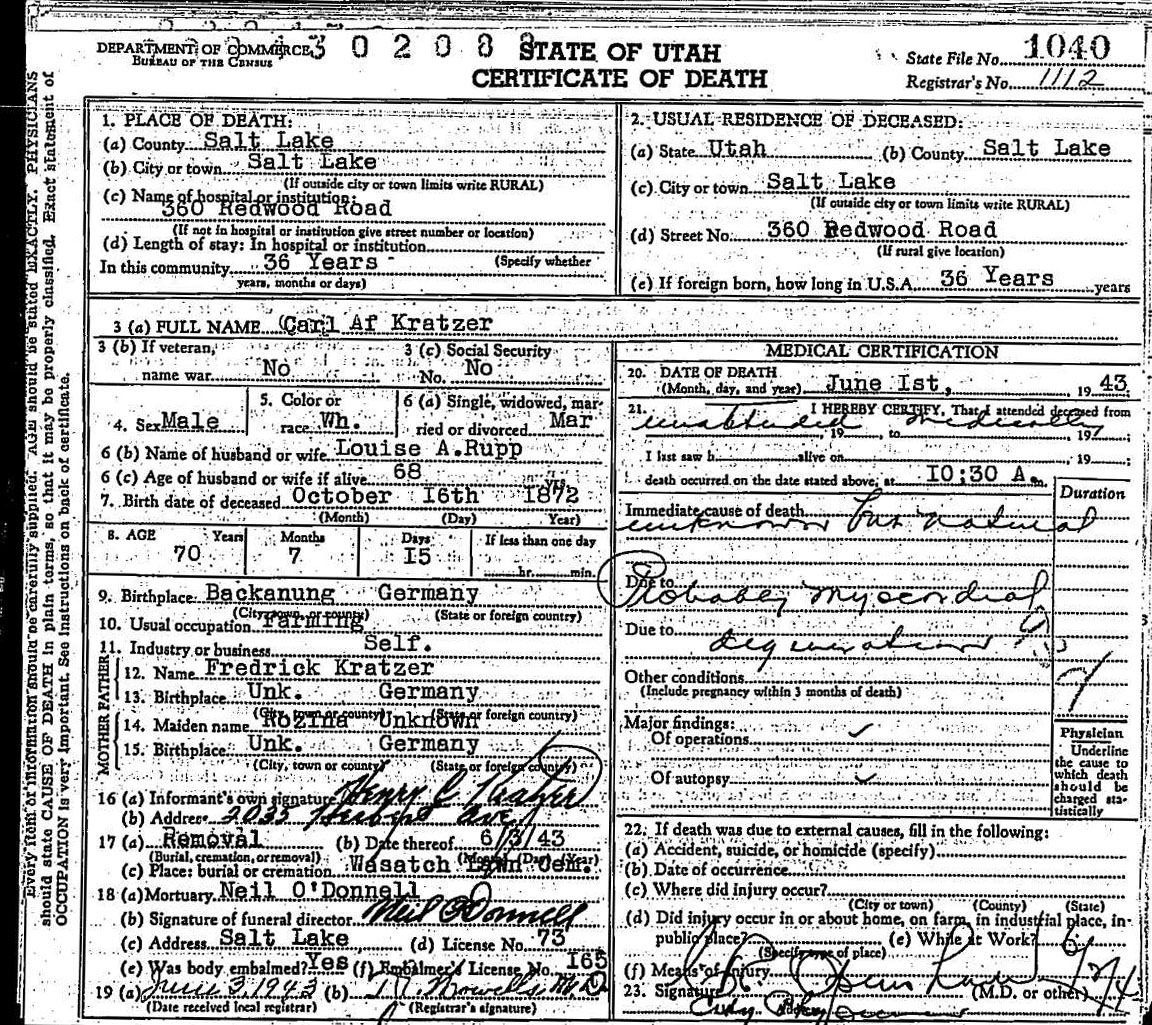 DEPARTMENT OF COMMERCE
BUREAU OF THE CENSUS
3 0 2 0 8
STATE OF UTAH
CERTIFICATE OF DEATH
State File No. 1040
Registrar's No. 1112
Every item of information should be carefully supplied. AGE should be stated EXACTLY. PHYSICIANS
should state CAUSE OF DEATH in plain terms, so that it may be properly classified. Exact statement of
OCCUPATION is very important. See instructions on back of certificate.
1. PLACE OF DEATH:
(a) County Salt Lake
(b) City or town Salt Lake
(If outside city or town limits write RURAL)
(c) Name of hospital or institution:
360 Redwood Road
(If not in hospital or institution give street number or location)
(d) Length of stay: In hospital or institution
In this community 36 Years (Specify whether
years, months or days)
2. USUAL RESIDENCE OF DECEASED:
(a) State Utah (b) County Salt Lake
(c) City or town Salt Lake
(If outside city or town limits write RURAL)
(d) Street No. 360 Redwood Road
(If rural give location)
(e) If foreign born, how long in U.S.A. 36 Years years
3 (a) FULL NAME Carl Af Kratzer
3 (b) If veteran, name war No
3 (c) Social Security No. No
4. Sex Male
5. Color or race Wh.
6 (a) Single, widowed, married or divorced Mar
6 (b) Name of husband or wife Louise A.Rupp
6 (c) Age of husband or wife if alive 68 yrs.
7. Birth date of deceased October I6th 1872
(Month) (Day) Year)
8. AGE Years Months Days If less than one day
70 7 I5 hr. min.
9. Birthplace Backanung Germany
(City town, or county) (State or foreign country)
10. Usual occupation Farming
11. Industry or business Self.
FATHER
12. Name Fredrick Kratzer
13. Birthplace Unk. Germany
(City, town or county) (State or foreign country)
MOTHER
14. Maiden name Rozina Unknown
15. Birthplace Unk. Germany
(City, town or county) (State or foreign country)
16 (a) Informant's own signature Henry C Kratzer
(b) Address 2035 Ave
17 (a) Removal (b) Date thereof 6/3/43
(Burial, cremation, or removal) (Month) (Day) (Year)
(c) Place: burial or cremation Wasatch Lawn Cem.
18 (a) Mortuary Neil O'Donnell
(b) Signature of funeral director Neil O'Donnell
(c) Address Salt Lake (d) License No. 73
(e) Was body embalmed? Yes (f) Embalmer's License No. I65
19 (a) June 3, 1943 (b) M.D.
(Date received local registrar) (Registrar's signature)
MEDICAL CERTIFICATION
20. DATE OF DEATH
(Month, day, and year) June Ist, 19 43
21. I HEREBY CERTIFY, That I attended deceased from
unattended medically, 19, to 19
I last saw h alive on 19
death occurred on the date stated above, at I0:30 A m.
Duration
Immediate cause of death
unknown but natural
Due to
Probably myocardial
Due to
degeneration
Other conditions
(Include pregnancy within 3 months of death)
Major findings:
Of operations
Of autopsy
Physician
Underline
the cause to
which death
should be
charged sta-
tistically
22. If death was due to external causes, fill in the following:
(a) Accident, suicide, or homicide (specify)
(b) Date of occurrence
(c) Where did injury occur?
(City or town) (County) (State)
(d) Did injury occur in or about home, on farm, in industrial place, in
public place? (e) While at Work?
(Specify type of place)
(f) Means of injury
23. Signature (M.D. or other)
City